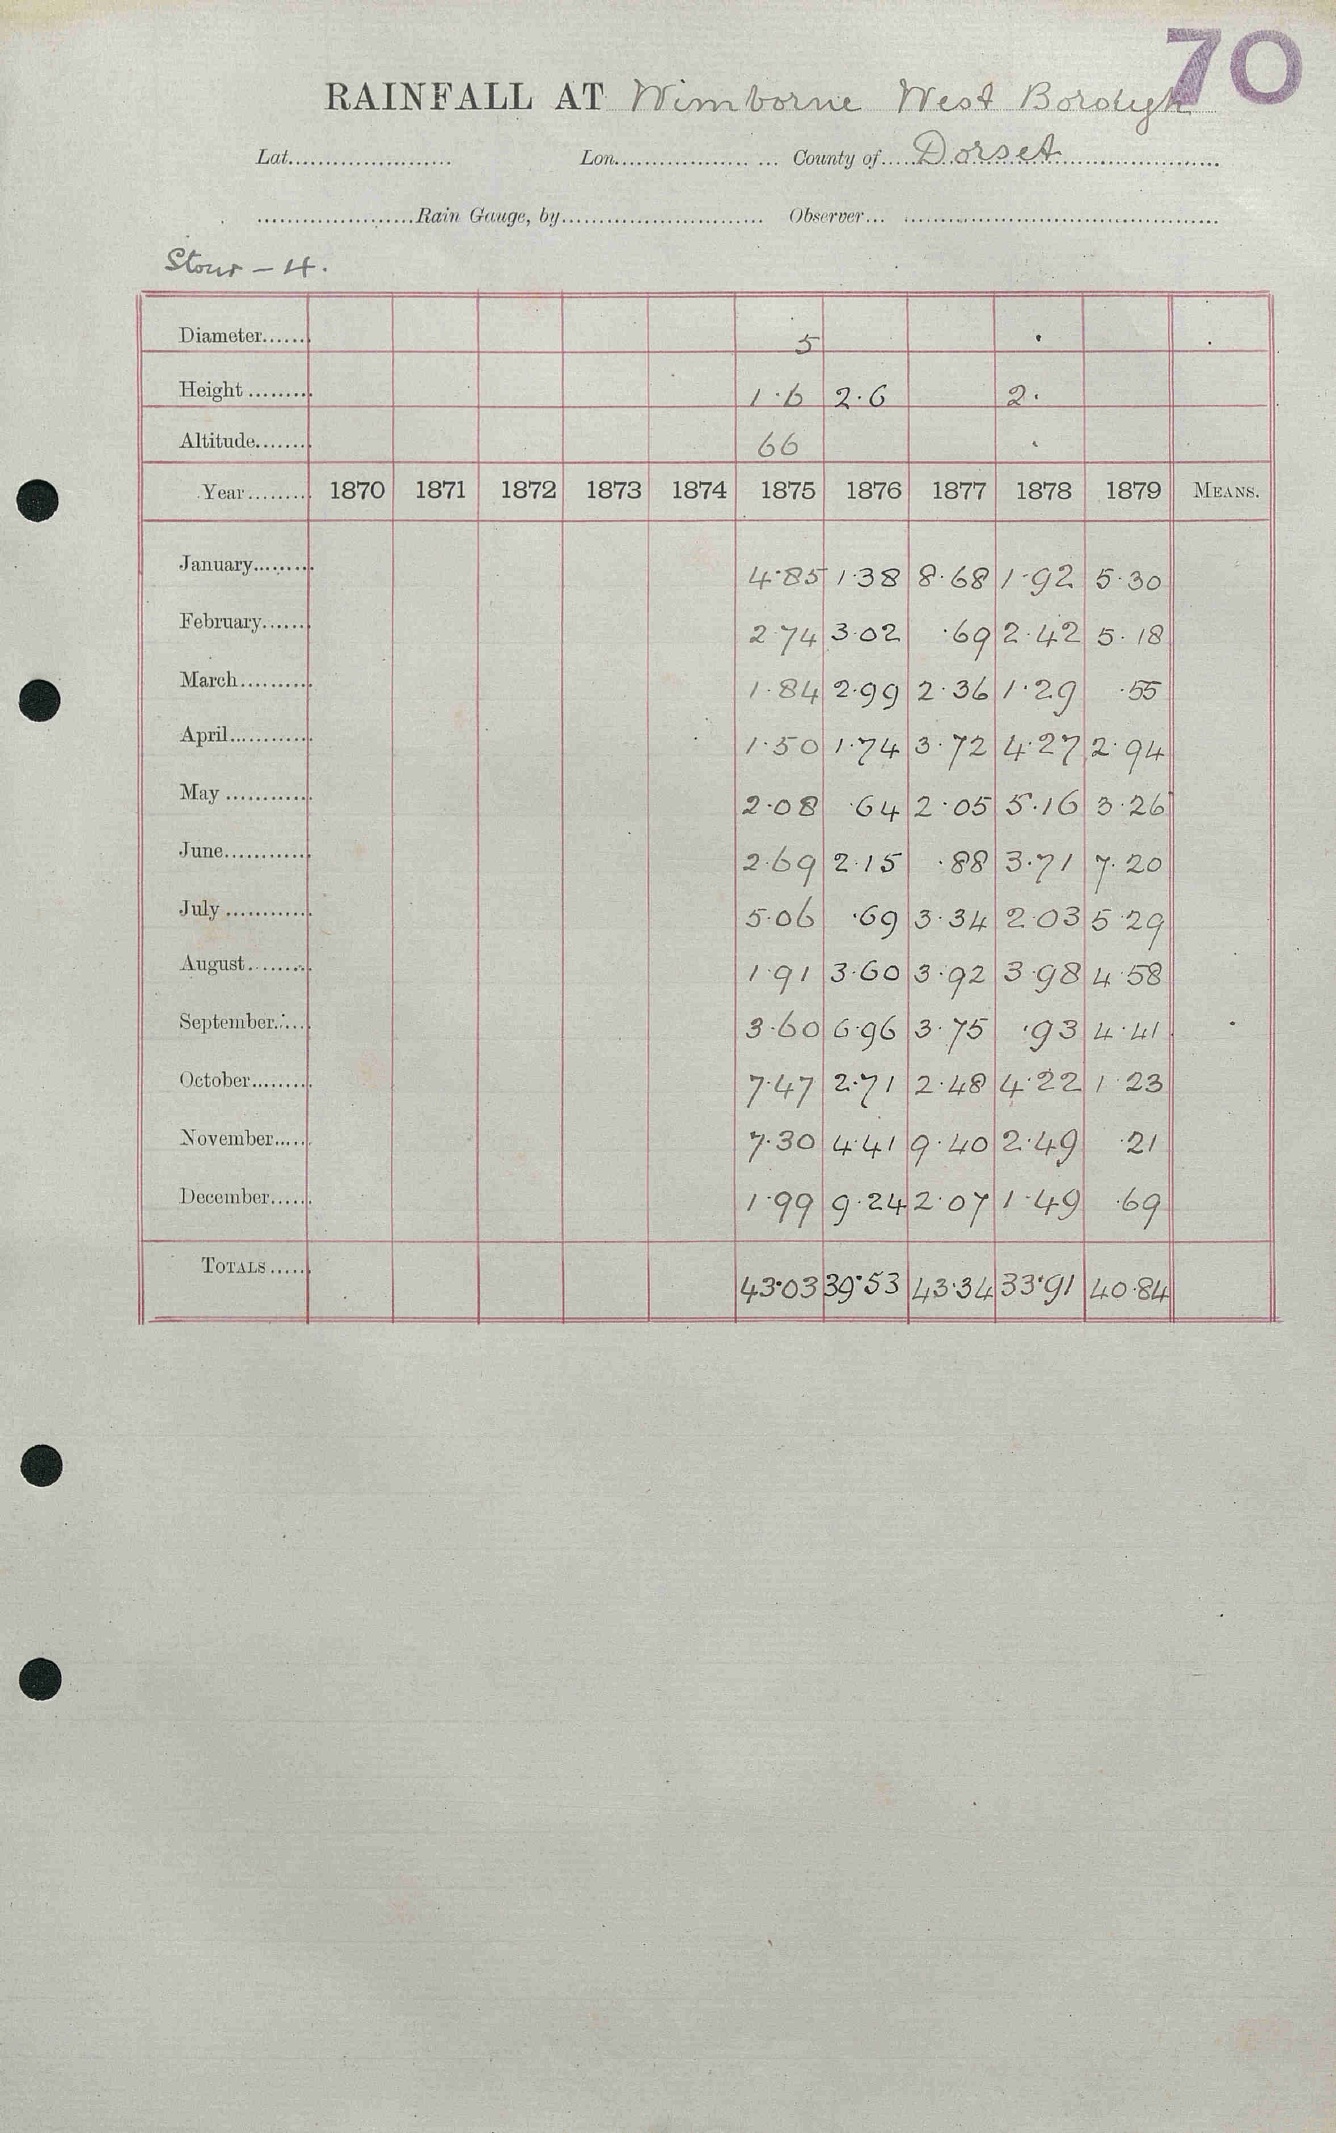 70
RAINFALL AT Wimborne West Borough
Lat. Lon. County of Dorset
Rain Gauge, by Observer
Stour - 4.
Diameter 5
Height 1.6 2.6 2.
Altitude 66
Year 1870 1871 1872 1873 1874 1875 1876 1877 1878 1879 MEANS.
January 4.85 1.38 8.68 1.92 5.30
February 2.74 3.02 .69 2.42 5.18
March 1.84 2.99 2.36 1.29 .55
April 1.50 1.74 3.72 4.27 2.94
May 2.08 .64 2.05 5.16 3.26
June 2.69 2.15 .88 3.71 7.20
July 5.06 .69 3.34 2.03 5.29
August 1.91 3.60 3.92 3.98 4.58
September 3.60 6.96 3.75 .93 4.41
October 7.47 2.71 2.48 4.22 1.23
November 7.30 4.41 9.40 2.49 .21
December 1.99 9.24 2.07 1.49 .69
TOTALS 43.03 39.53 43.34 33.91 40.84